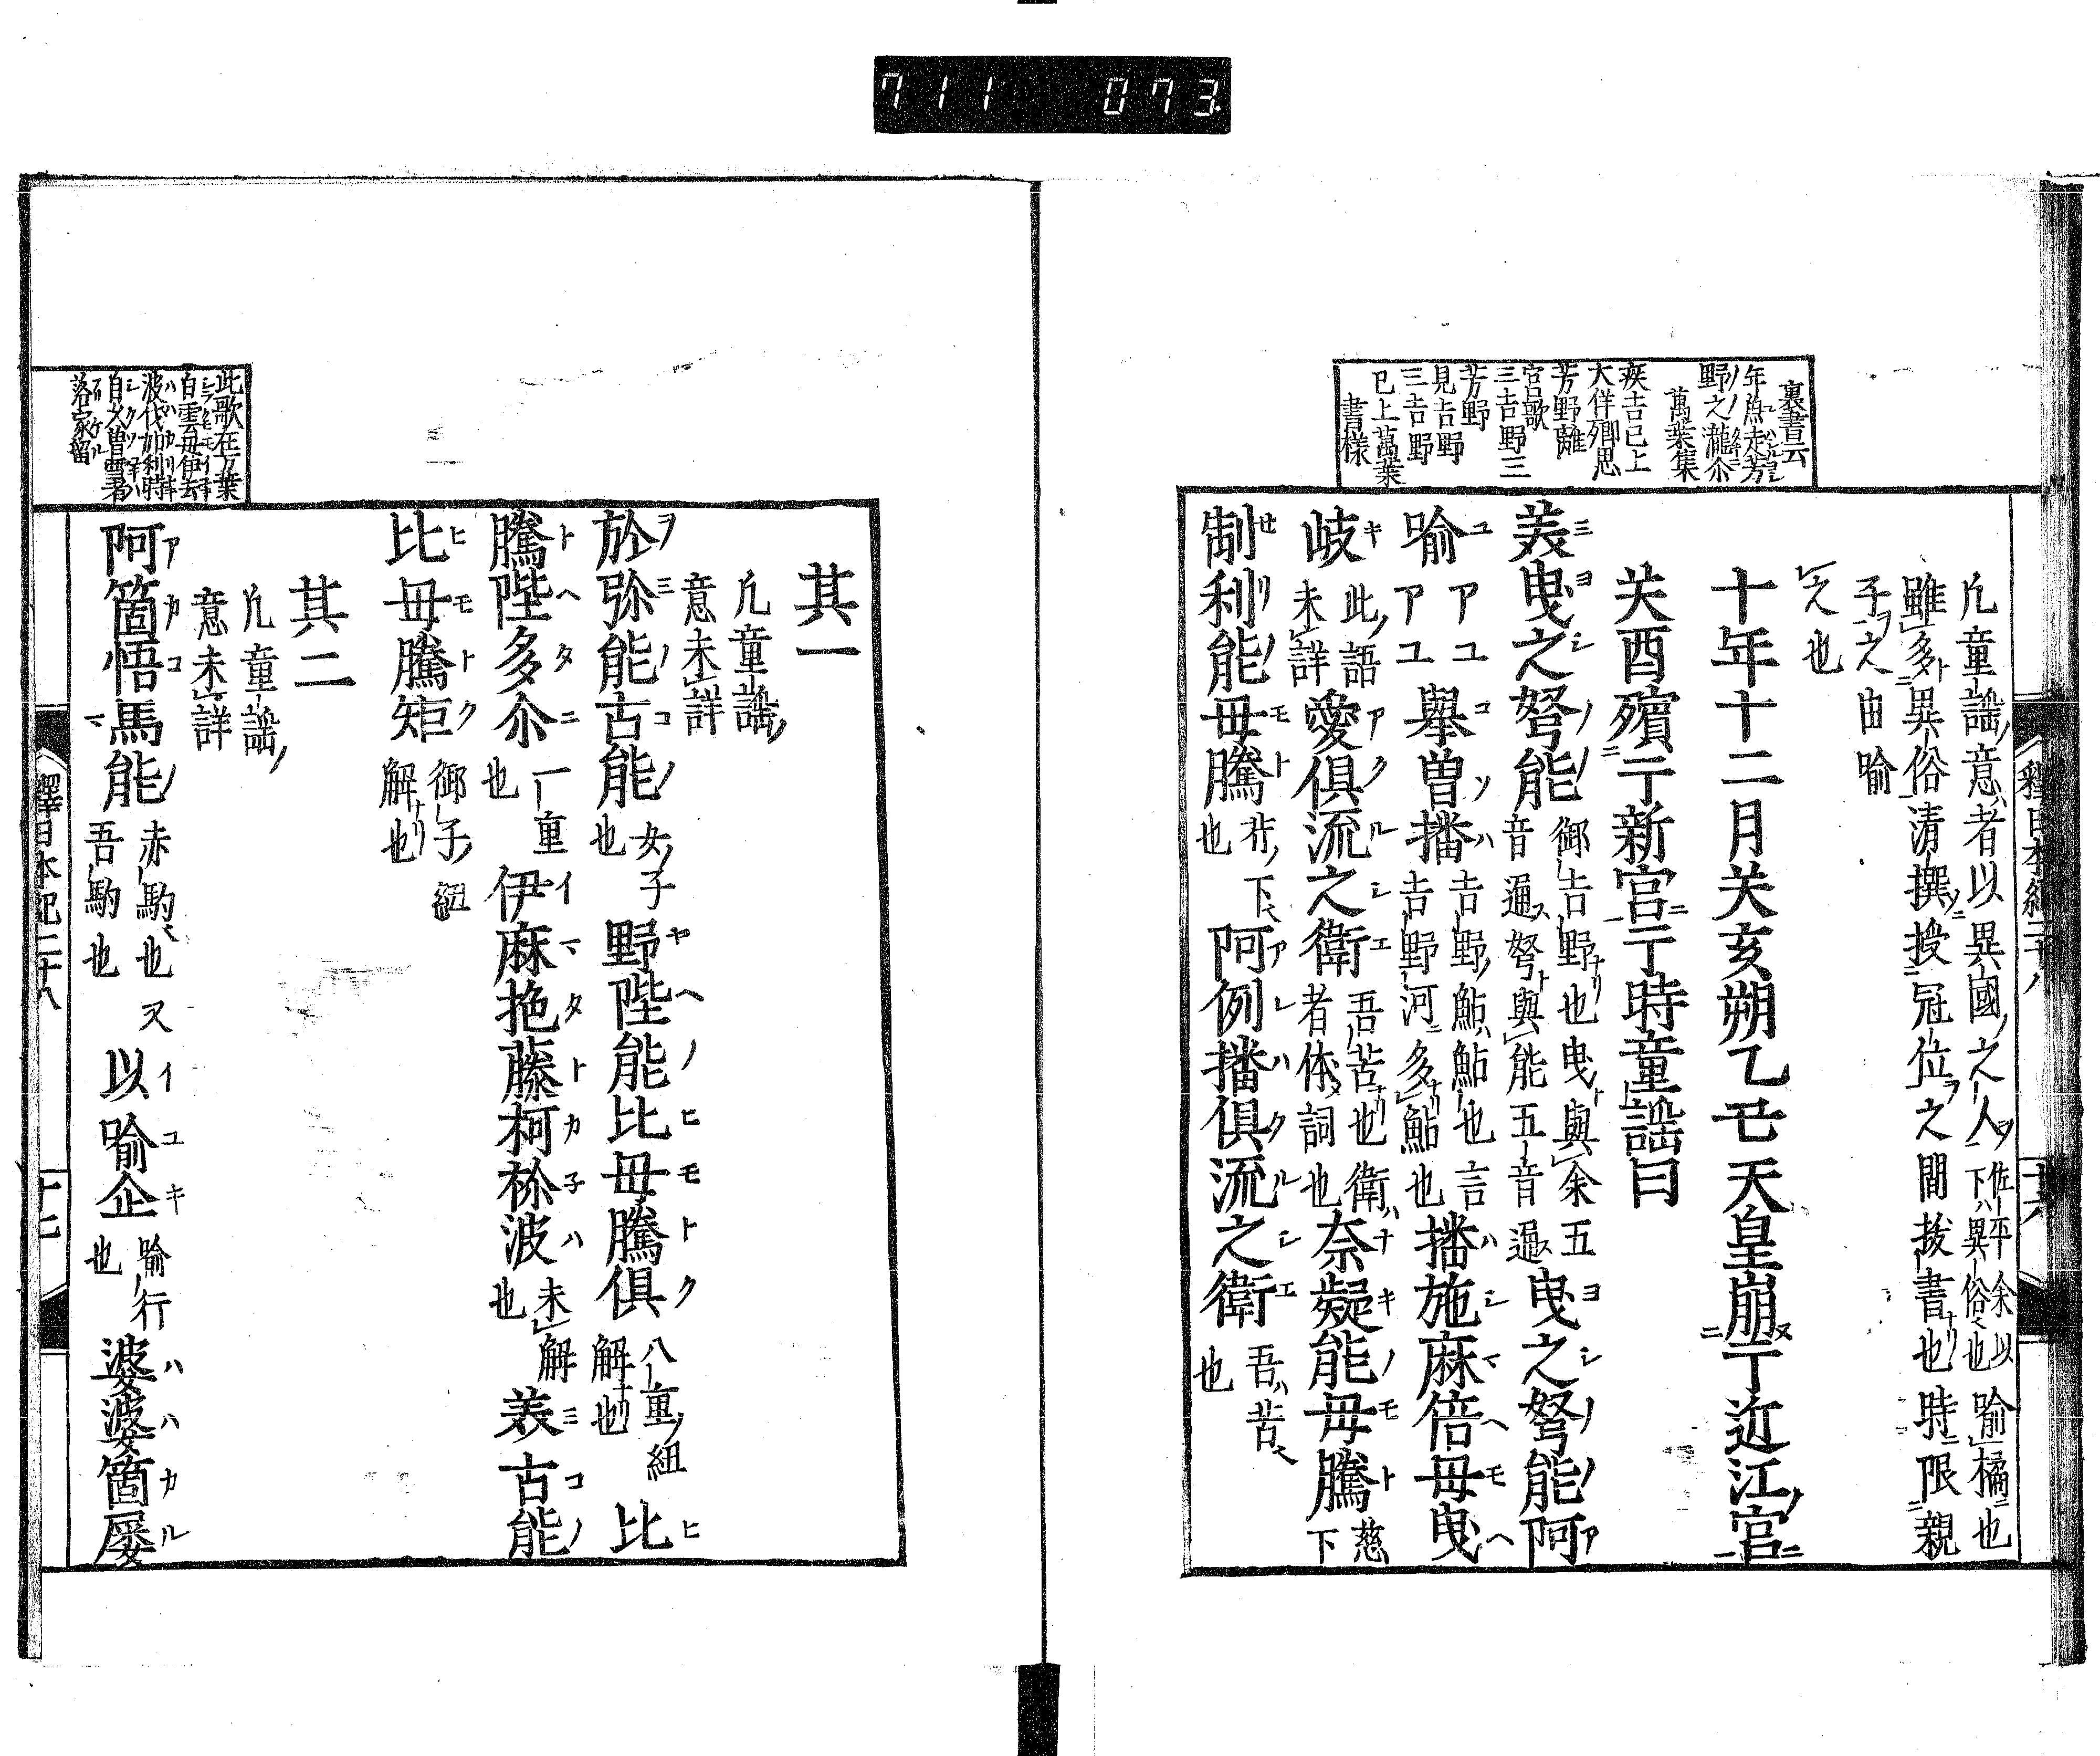 711 073
裏書云
年魚走芳
野之瀧尒
萬葉集
疾吉已上
大伴卿思
芳野離
宮歌
三吉野三
芳野
見吉野
三吉野
已上萬葉
書様
凢童謡意者以異國之人佐平余以下異俗也喻橘也
雖多異俗清撰授冠位之間拔書也時限親
子之由喻
之也
十年十二月关亥朔乙丑天皇崩于近江宮
关酉殯于新宮于時童謡曰
美曳之弩能御吉野也曳與余五音通弩與能五音通曳之弩能阿
喻アユ擧曽播吉野鮎鮎也言吉野河多鮎也播施麻倍母曳
岐此語未詳愛俱流之衛吾苦也衛者体詞也奈凝能母騰慈下
制利能母騰芹下也阿例播俱流之衛吾苦也
釋日本紀二十八
十六
其一
凢童謡
意未詳
於弥能古能女子也野陛能比母騰俱八重紐解也比
騰陛多尒一重也伊麻拖藤柯祢波未解也美古能
比母騰矩御子紐解也
其二
凢童謡
意未詳
阿箇悟馬能赤駒也又吾駒也以喻企喻行也婆婆箇屡
此歌在万葉
白雲毋伊去
波伐加利時
自久曽雪者
落家留
釋日本紀二十八
十七